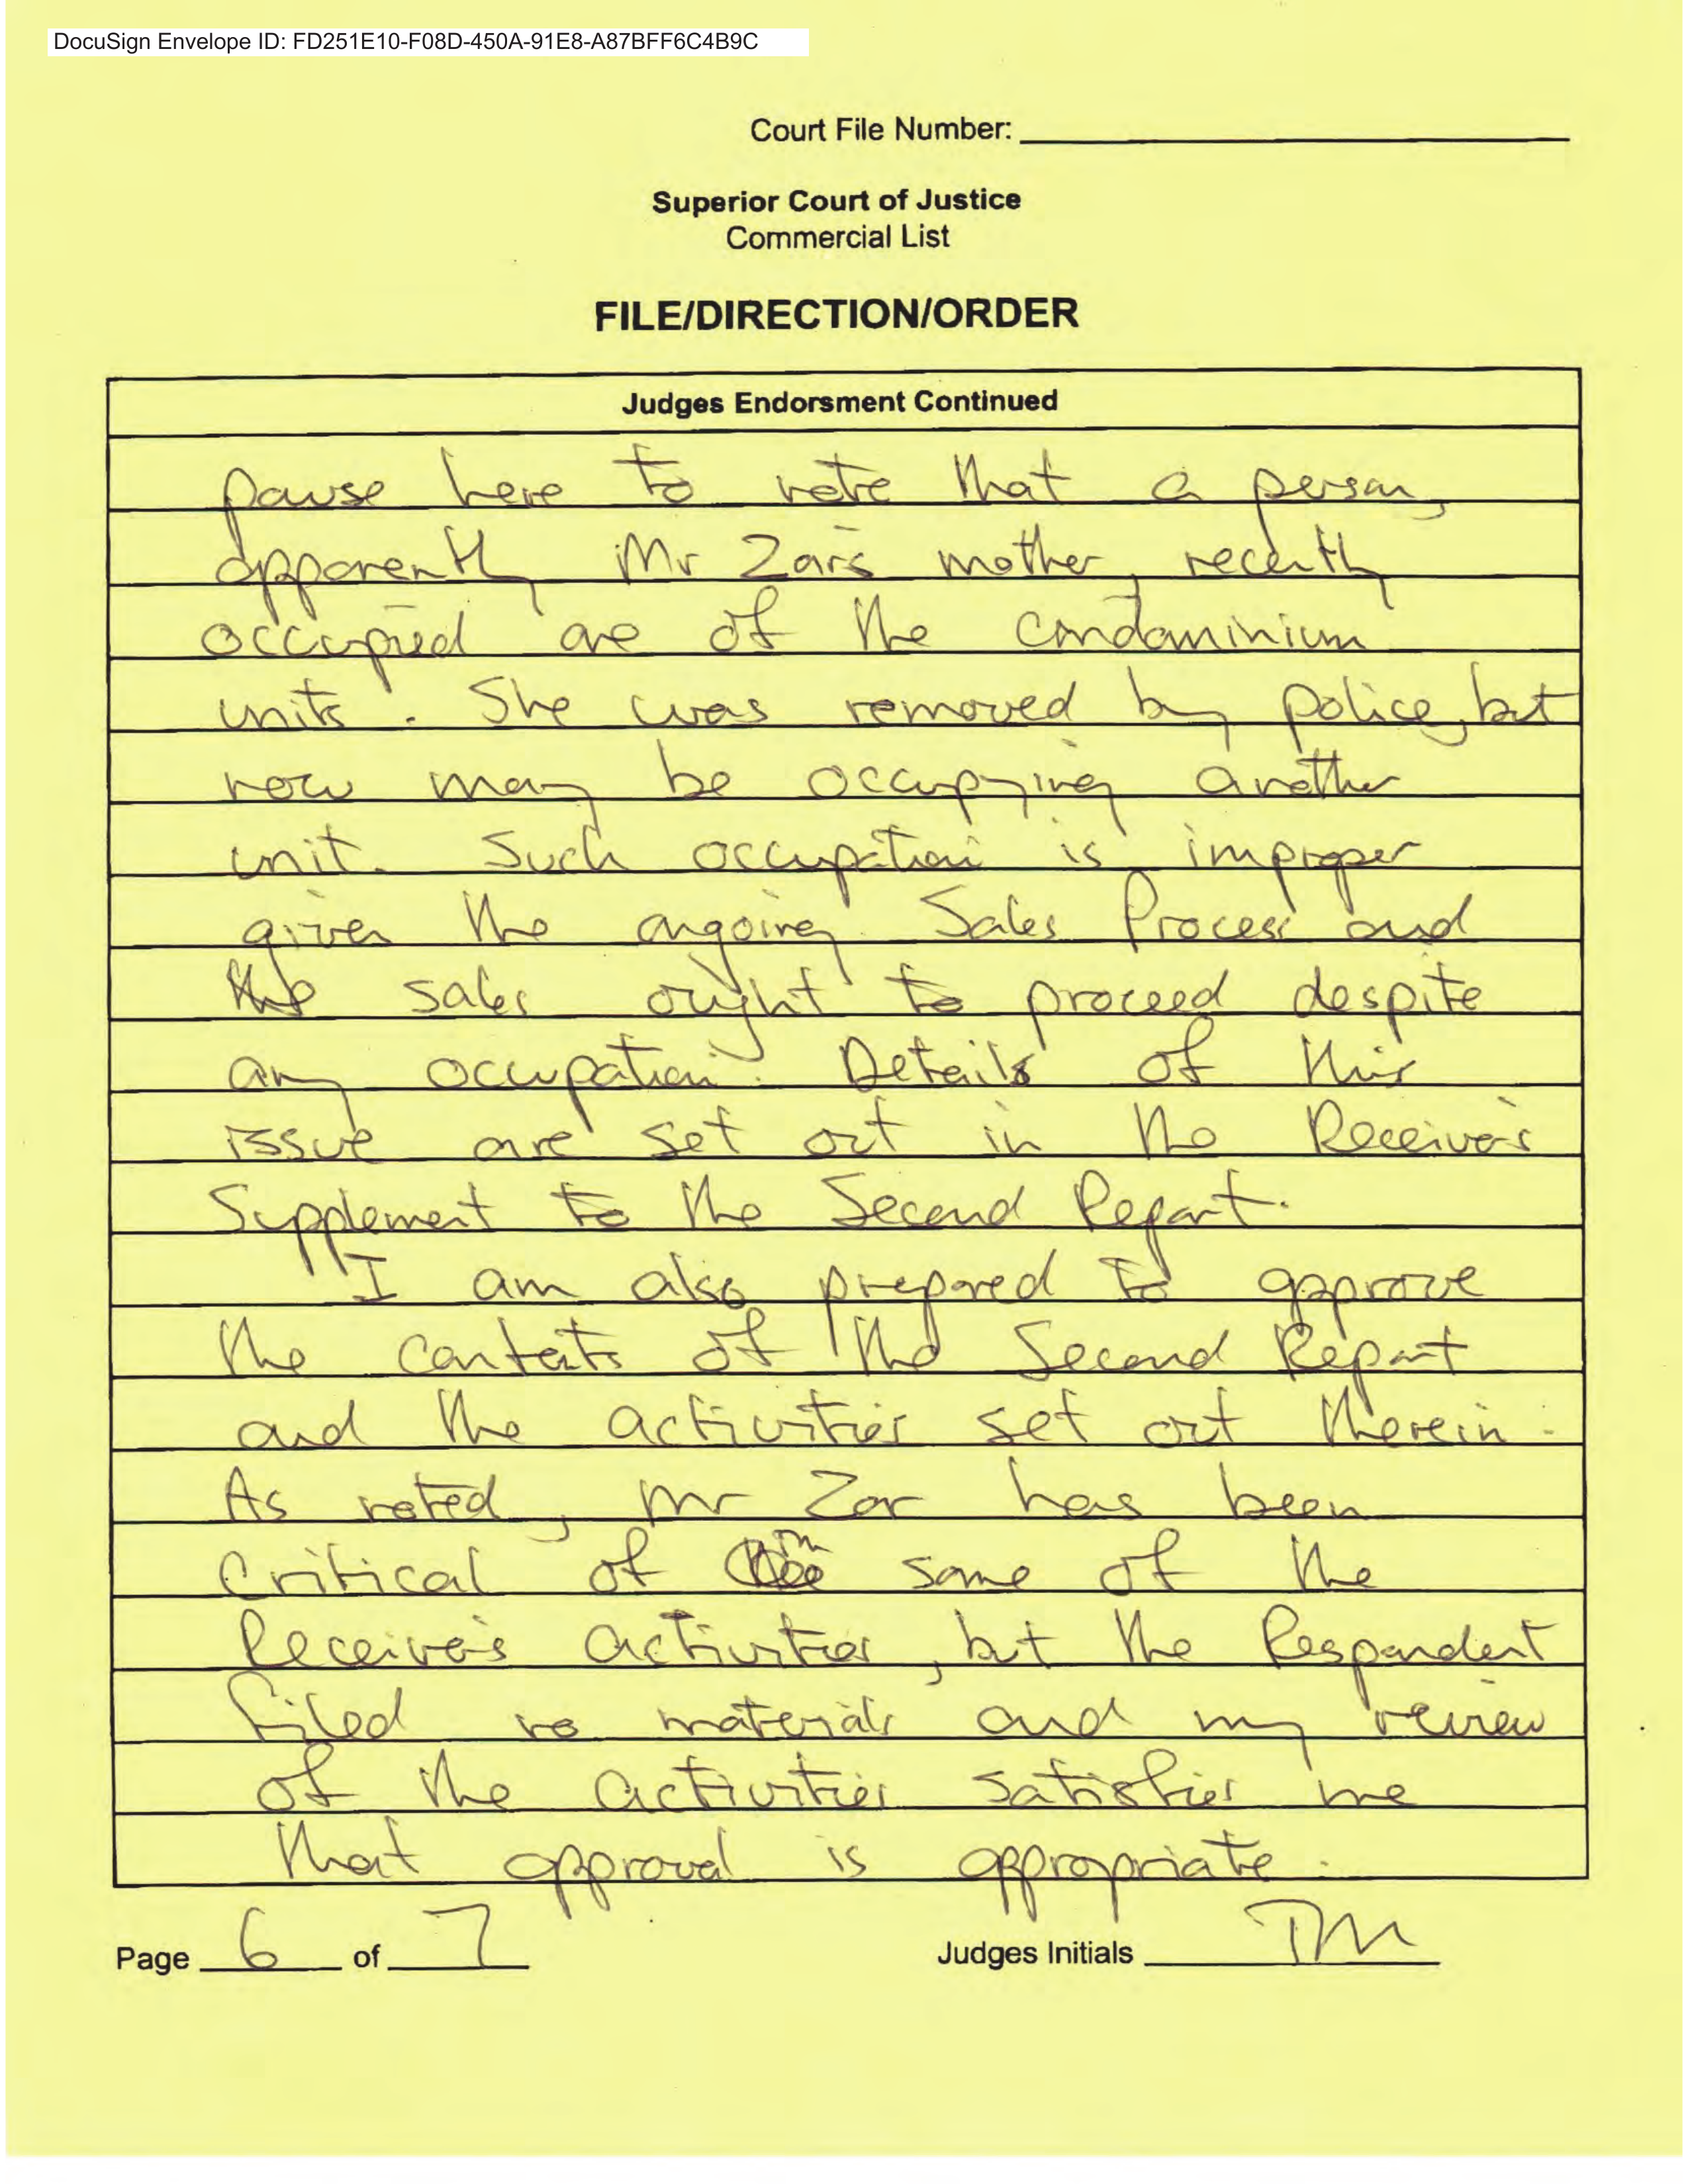 DocuSign Envelope ID: FD251E10-F08D-450A-91E8-A87BFF6C4B9C
Court File Number:
Superior Court of Justice
Commercial List
FILE/DIRECTION/ORDER
Judges Endorsment Continued
pause here to note that a person,
apparently Mr Zar's mother, recently
occupied one of the condominium
units. She was removed by police, but
now may be occupying another
unit. Such occupation is improper
given the ongoing Sales Process and
the sales ought to proceed despite
any occupation. Details of this
issue are set out in the Receiver's
Supplement to the Second Report.
I am also prepared to approve
the contents of the Second Report
and the activities set out therein.
As noted, Mr Zar has been
critical of some of the
Receiver's activities, but the Respondent
filed no materials and my review
of the activities satisfies me
that approval is appropriate.
Page 6 of 7
Judges Initials TM